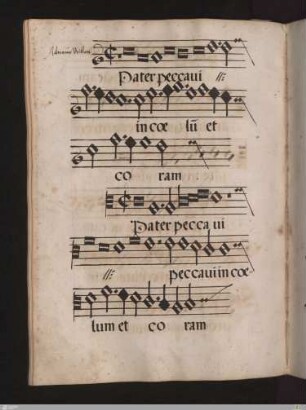 Pater peccaui
in cœ lū et
co ram
Pater pecca ui
peccaui in cœ
lum et co ram